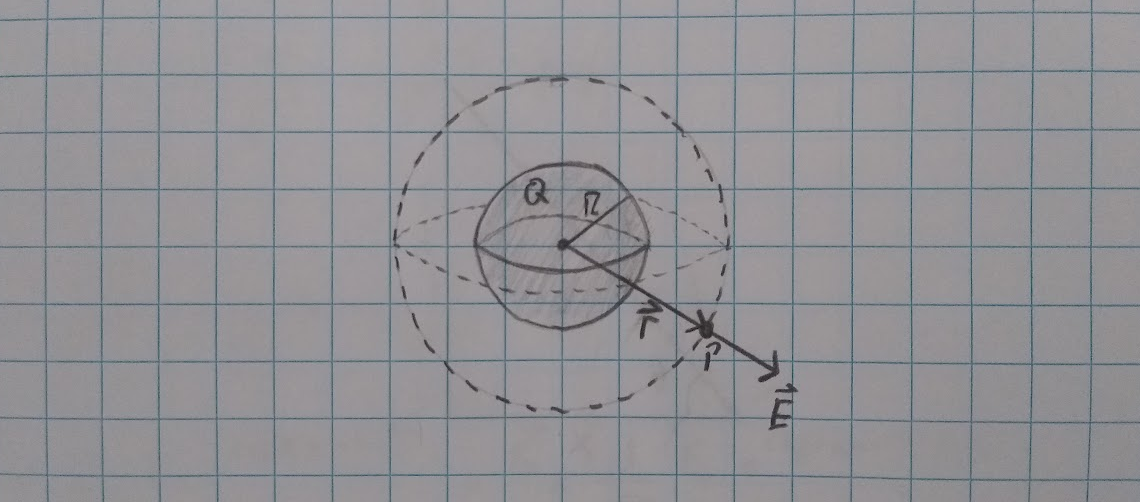 Q
R
r⃗
P
E⃗